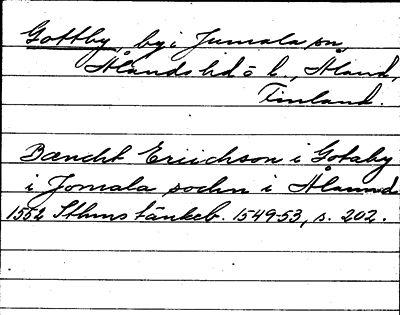 Gottby, by i Jumala sn,
Ålands hd o l., Åland,
Finland.
Bæncht Eriichson i Gotaby
i Jomala sochn i Ålannd
1552 Sthms tänkeb. 1549-53, s. 202.